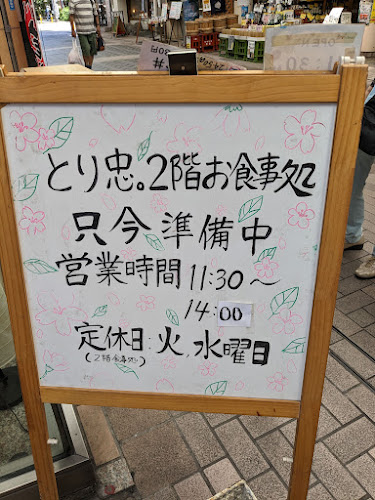 とり忠。2階お食事処
只今準備中
営業時間 11:30～
14:00
定休日:火、水曜日
(2階食事処)